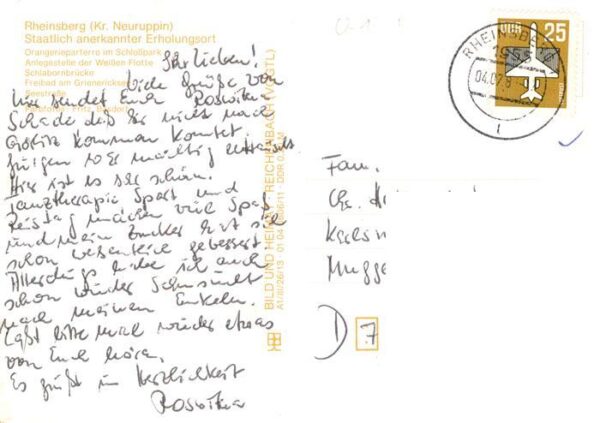 Rheinsberg (Kr. Neuruppin)
Staatlich anerkannter Erholungsort
Orangerieparterre im Schloßpark
Anlegestelle der Weißen Flotte
Schlabornbrücke
Freibad am Grienericksee
Seestraße
Ihr lieben!
viele Grüße von
hier sendet Euch Roswitha
Schade daß Ihr nicht nach
Görlitz kommen konntet.
mächtig
Hier ist es sehr schön.
Tanztherapie Sport und
machen viel Spaß
und mein Zucker hat sich
schon wesentlich gebessert
Allerdings habe ich auch
schon wieder Sehnsucht
nach meinen Enkeln.
Laßt bitte mal wieder etwas
von Euch hören.
Es grüßt in Herzlichkeit
Roswitha
BILD UND HEIMAT REICHENBACH (VOGTL)
A1/III/26/13
DDR
25
RHEINSBERG
1955
04.07.8
1
Fam.
Chr.
D 7